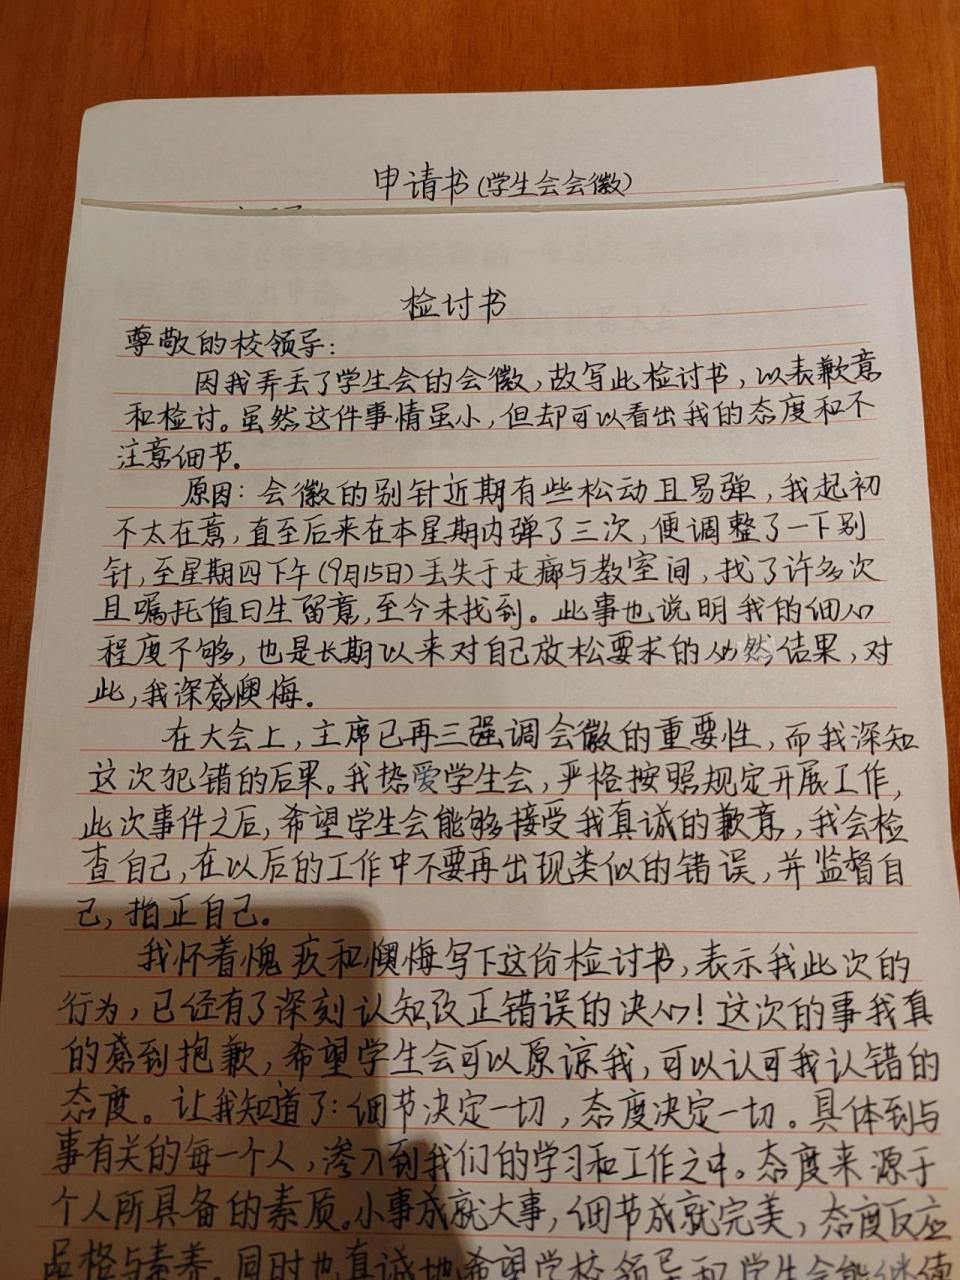 申请书(学生会会徽)
检讨书
尊敬的校领导:
因我弄丢了学生会的会徽,故写此检讨书,以表歉意
和检讨。虽然这件事情虽小,但却可以看出我的态度和不
注意细节。
原因:会徽的别针近期有些松动且易弹,我起初
不太在意,直至后来在本星期内弹了三次,便调整了一下别
针,至星期四下午(9月15日)丢失于走廊与教室间,找了许多次
且嘱托值日生留意,至今未找到。此事也说明我的细心
程度不够,也是长期以来对自己放松要求的必然结果,对
此,我深感懊悔。
在大会上,主席已再三强调会徽的重要性,而我深知
这次犯错的后果。我热爱学生会,严格按照规定开展工作,
此次事件之后,希望学生会能够接受我真诚的歉意,我会检
查自己,在以后的工作中不要再出现类似的错误,并监督自
己,指正自己。
我怀着愧疚和懊悔写下这份检讨书,表示我此次的
行为,已经有了深刻认知、改正错误的决心!这次的事我真
的感到抱歉,希望学生会可以原谅我,可以认可我认错的
态度。让我知道了:细节决定一切,态度决定一切。具体到与
事有关的每一个人,渗入到我们的学习和工作之中。态度来源于
个人所具备的素质。小事成就大事,细节成就完美,态度反应
品格与素养。同时也真诚地希望学校领导和学生会能继续